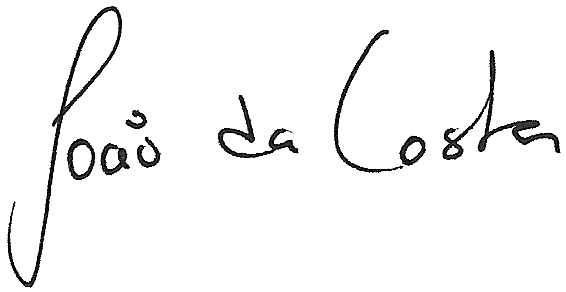 João da Costa